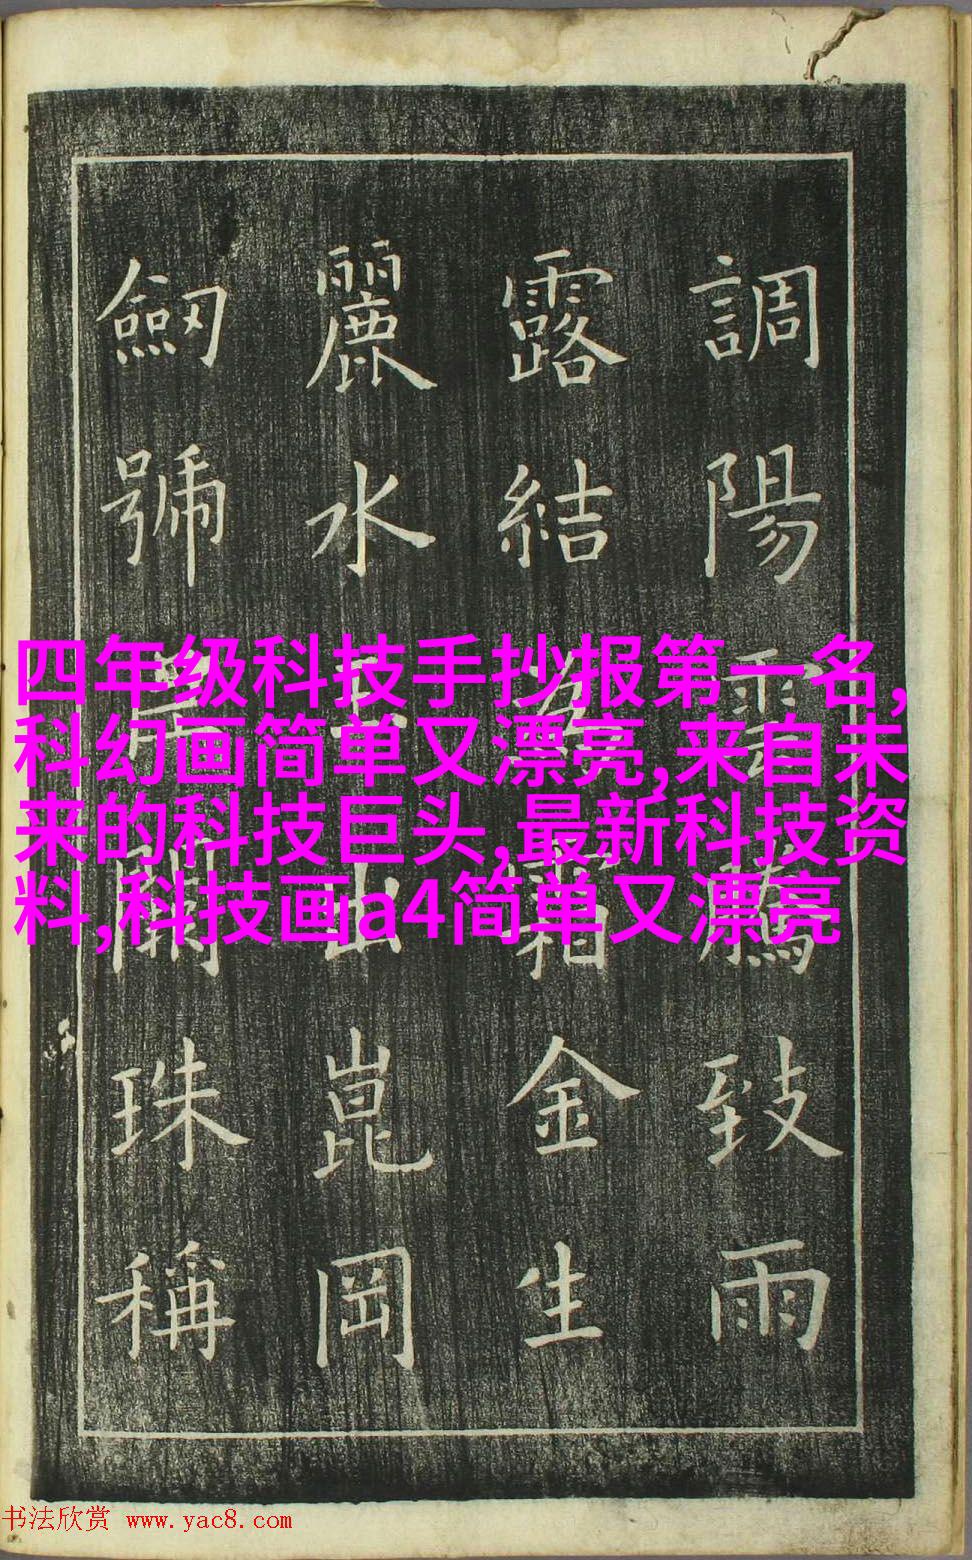 調陽雲騰致雨
露結為霜金生
麗水玉出崑岡
劒號巨闕珠稱
四年级科技手抄报第一名,
科幻画简单又漂亮,来自未
来的科技巨头,最新科技资
料,科技画a4简单又漂亮
书法欣赏 www.yac8.com